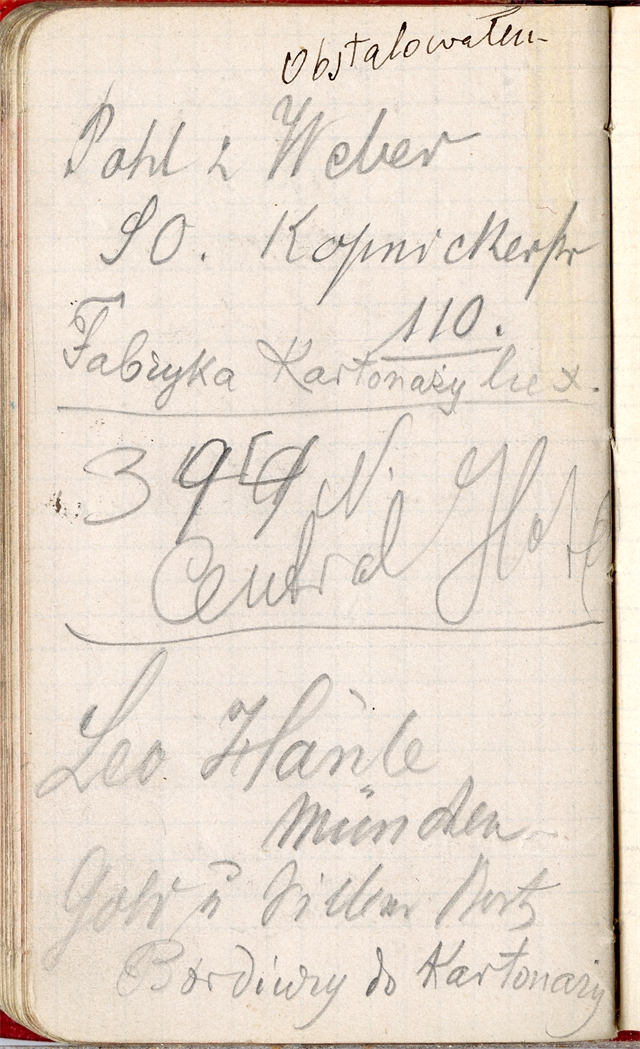 Obstalowałem
Pohl & Weber
SO. Köpnickerstr
110.
Fabryka Kartonaży
39 N.
Central Hotel
Leo Hänle
München
Gold u Silber
Bordiury do Kartonaży